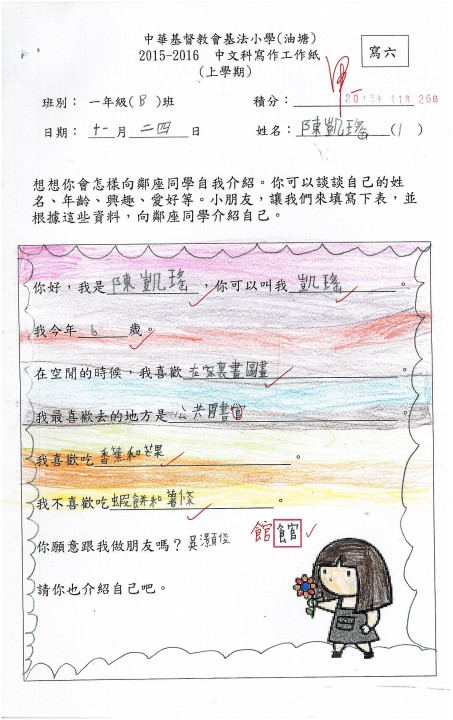 中華基督教會基法小學(油塘)
2015-2016 中文科寫作工作紙
(上學期)
寫六
班別：一年級(B)班
積分：
2015年11月26日
日期：十一月二四日
姓名：陳凱瑤(1)
想想你會怎樣向鄰座同學自我介紹。你可以談談自己的姓
名、年齡、興趣、愛好等。小朋友，讓我們來填寫下表，並
根據這些資料，向鄰座同學介紹自己。
你好，我是陳凱瑤，你可以叫我凱瑤。
我今年6歲。
在空閒的時候，我喜歡在家裏畫圖畫。
我最喜歡去的地方是公共圖書館。
我喜歡吃香蕉和芒果。
我不喜歡吃蝦餅和薯條。
你願意跟我做朋友嗎？吳灝俊
館館
請你也介紹自己吧。